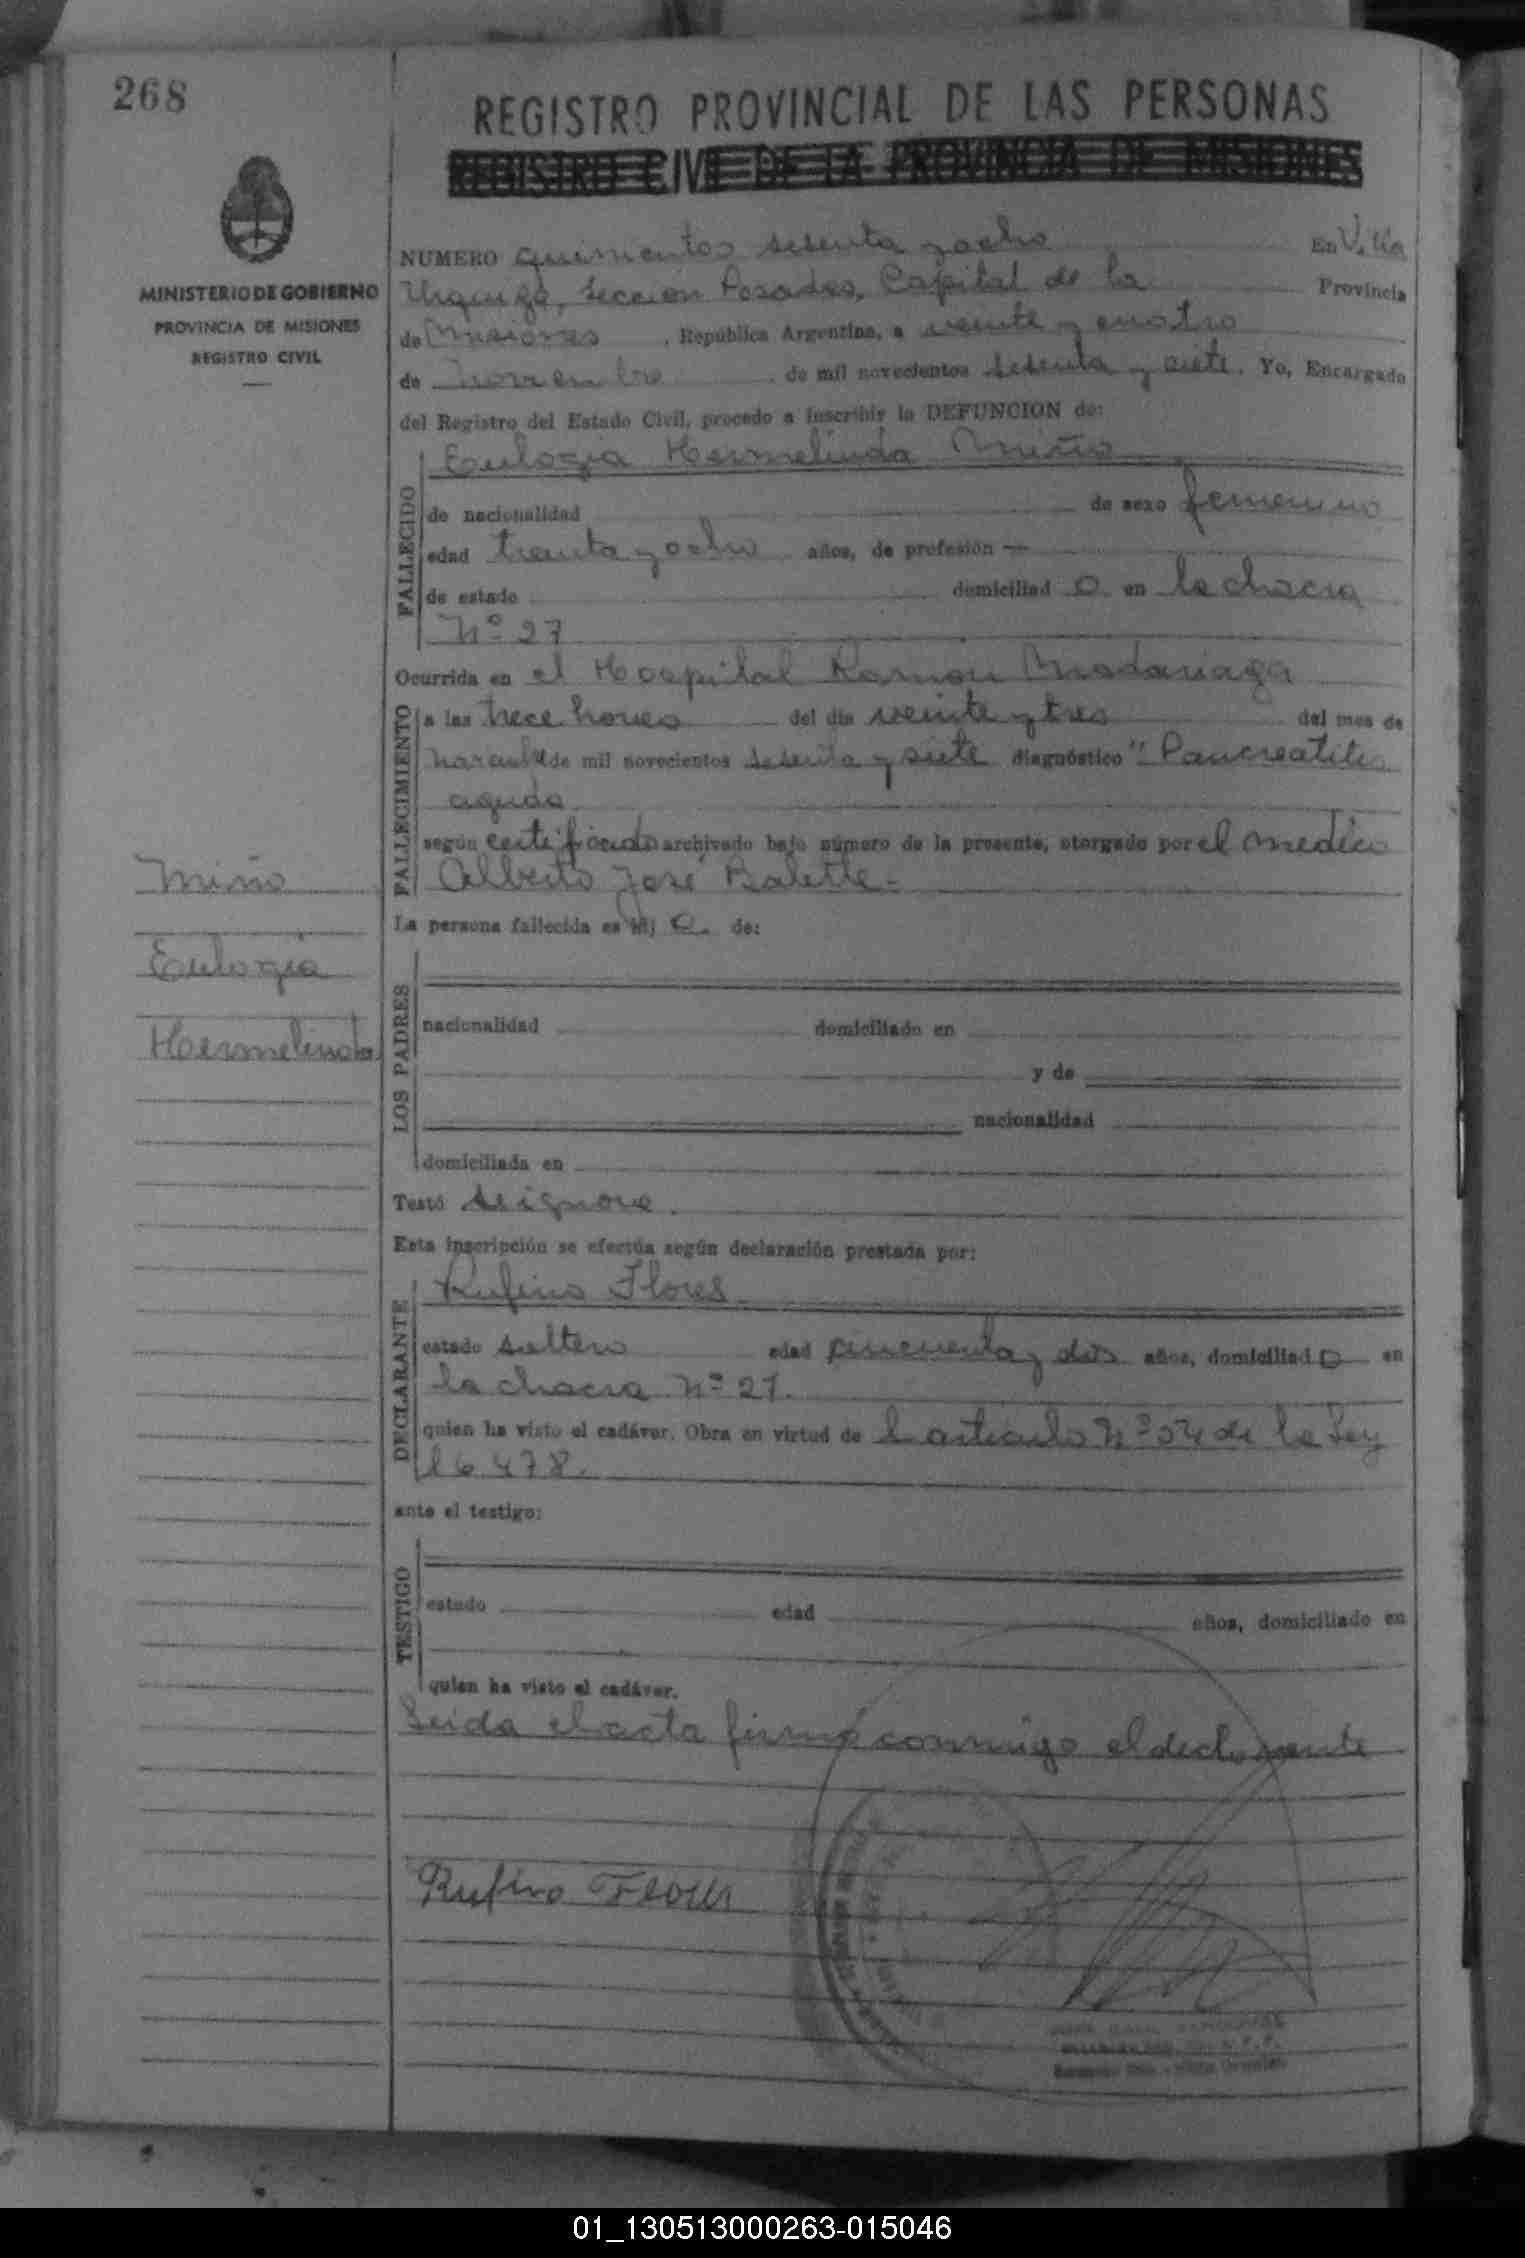 268
REGISTRO PROVINCIAL DE LAS PERSONAS
REGISTRO CIVIL DE LA PROVINCIA DE MISIONES
MINISTERIO DE GOBIERNO
PROVINCIA DE MISIONES
REGISTRO CIVIL
NUMERO quinientos setenta y ocho En Villa
Urquiza, Seccion Posadas, Capital de la Provincia
de Misiones, República Argentina, a veinte y cuatro
de noviembre de mil novecientos setenta y siete. Yo, Encargado
del Registro del Estado Civil, procedo a inscribir la DEFUNCION de:
FALLECIDO
Eulogia Hermelinda Miño
de nacionalidad de sexo femenino
edad treinta y ocho años, de profesión —
de estado domiciliad o en la chacra
Nº 27
Ocurrida en el Hospital Ramon Madariaga
FALLECIMIENTO
a las trece horas del día veinte y tres del mes de
noviembre de mil novecientos setenta y siete diagnóstico "Pancreatitis
aguda
según certificado archivado bajo número de la presente, otorgado por el medico
Alberto José Balette.=
La persona fallecida es hij a. de:
Miño
Eulogia
Hermelinda
LOS PADRES
nacionalidad domiciliado en
y de
nacionalidad
domiciliada en
Testó se ignora.
Esta inscripción se efectúa según declaración prestada por:
DECLARANTE
Rufino Flores.
estado soltero edad cincuenta y dos años, domiciliad o en
la chacra Nº 27.
quien ha visto el cadáver. Obra en virtud de l articulo Nº 04 de la Ley
16478.
ante el testigo:
TESTIGO
estado edad años, domiciliado en
quien ha visto el cadáver.
Leida el acta firmó conmigo el declarante
Rufino Flores
01_130513000263-015046